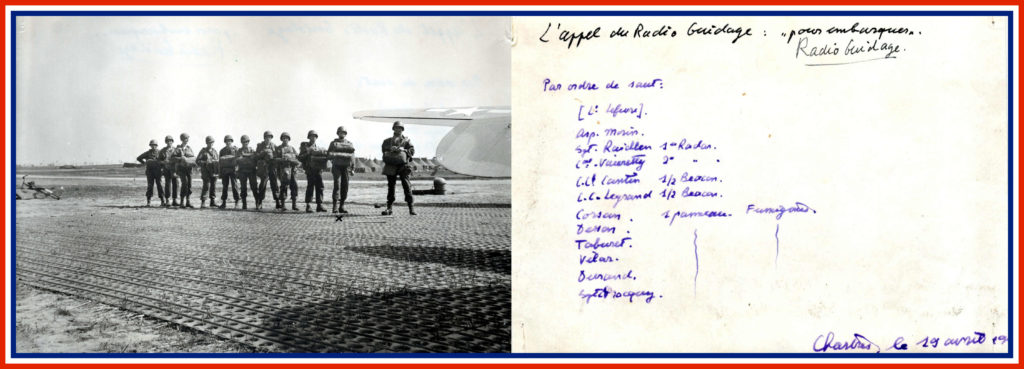 L'appel du Radio Guidage : "pour embarquer".
Radio Guidage.
Par ordre de saut :
[Lt Lefevre].
Asp. Morin.
Sgt. Raidllen 1er Radar.
2° " "
C.Ct Cantin 1/2 Beacon.
C.C. Legrand 1/2 Beacon.
Corsain. 1 panneau. Fumigènes.
Desson.
Taburet.
Vilar.
Durand.
Sgt
Chartres, le 19 avril 19